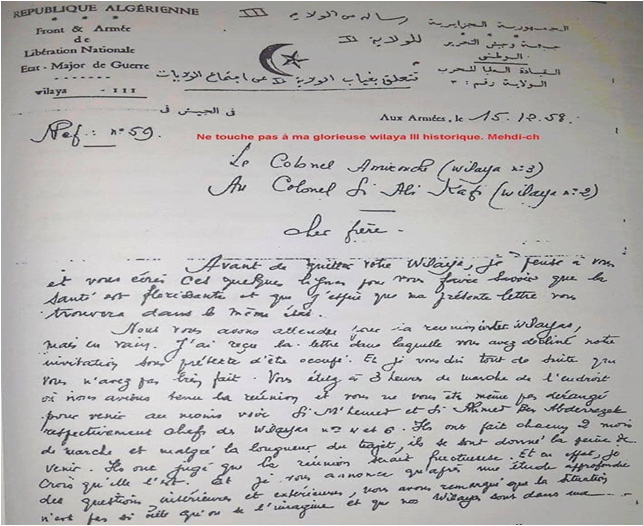 REPUBLIQUE ALGÉRIENNE
Front & Armée
de
Libération Nationale
Etat - Major de Guerre
wilaya - III
رسالة من الولاية III
للولاية II
تتعلق بغياب الولاية II عن اجتماع الولايات
الجمهورية الجزائرية
جبهة وجيش التحرير
الوطني
القيادة العليا للحرب
الولاية رقم : 3
فى الجيش فى
Aux Armées, le 15.12.58.
Ref : n° 59.
Ne touche pas à ma glorieuse wilaya III historique. Mehdi-ch
Le Colonel Amirouche (wilaya n° 3)
Au Colonel Si Ali Kafi (wilaya n° 2)
Cher frère -
Avant de quitter votre Wilaya, je pense à vous
et vous écris ces quelques lignes pour vous faire savoir que la
santé est florissante et que j'espère que ma présente lettre vous
trouvera dans le même état.
Nous vous avons attendu pour la réunion interwilayas,
mais en vain. J'ai reçu la lettre dans laquelle vous avez décliné notre
invitation sous prétexte d'être occupé. Et je vous dis tout de suite que
vous n'avez pas bien fait. Vous étiez à 3 heures de marche de l'endroit
où nous avions tenu la réunion et vous ne vous êtes même pas dérangé
pour venir au moins voir Si M'hamed et Si Ahmed Ben Abderrezak
respectivement chefs des Wilayas n° 4 et 6. Ils ont fait chacun 2 mois
de marche et malgré la longueur du trajet, ils se sont donné la peine de
venir. Ils ont jugé que la réunion serait fructueuse. Et en effet, je
crois qu'elle l'est. Et je vous annonce qu'après une étude approfondie
des questions intérieures et extérieures, nous avons remarqué que la situation
n'est pas si belle qu'on se l'imagine et que nos Wilayas sont dans une